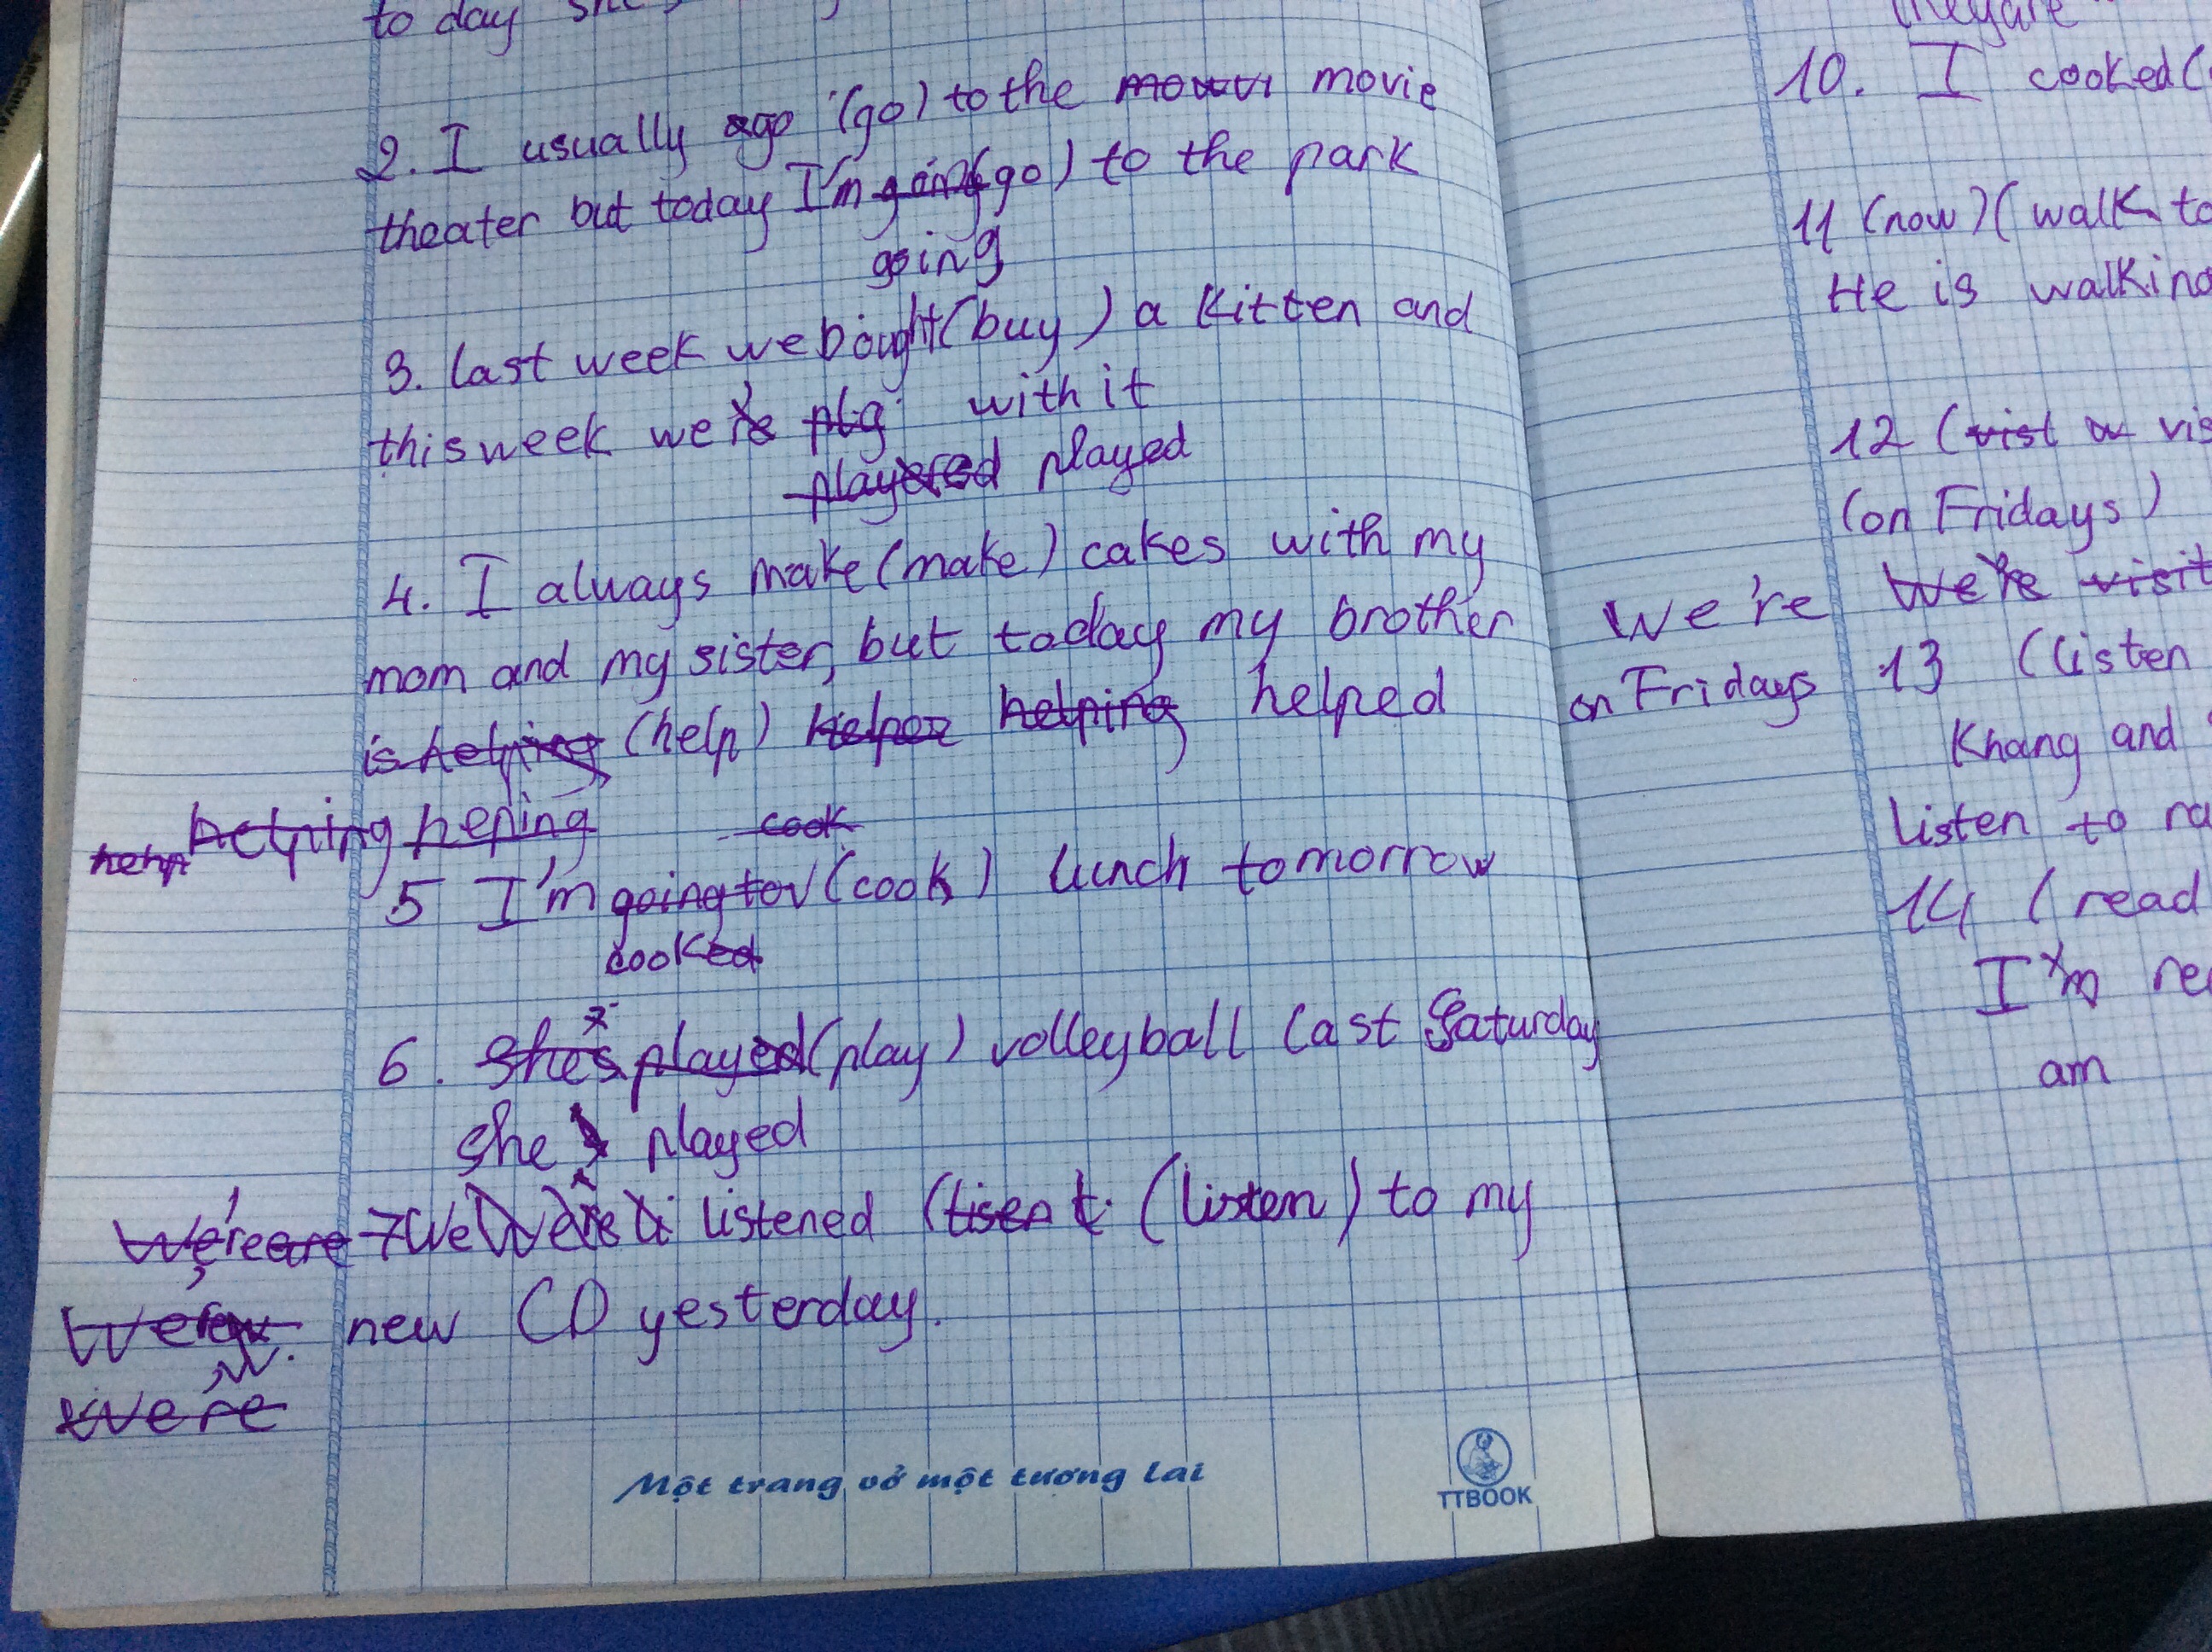 to day she
2. I usually go (go) to the movie
theater but today I'm going (go) to the park
going
3. last week we bought (buy) a kitten and
this week we're play with it
played
4. I always make (make) cakes with my
mom and my sister, but today my brother
is helping (help) helper helping helped
helping heping
help
cook
5 I'm going to (cook) lunch tomorrow
cooked
6. She's played (play) volleyball last Saturday
she played
7 We listened (lisen t (listen) to my
new CD yesterday.
we're
Một trang vở một tương lai
TTBOOK
they are
10. I cooked (
11 (now) (walk to
He is walking
12 (vist
(on Fridays)
We're We're visit
on Fridays
13 (listen
Khang and
listen to ra
14 (read
I'm re
am